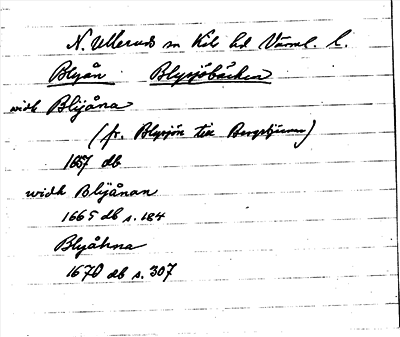 N. Ullerud sn Kils hd Värml. l.
Blyån Blysjöbäcken
widh Blijåna
(fr. Blysjön till Bergstjärnen)
1657 db
widh Blijånan
1665 db s. 184
Blyåhna
1670 db s. 307